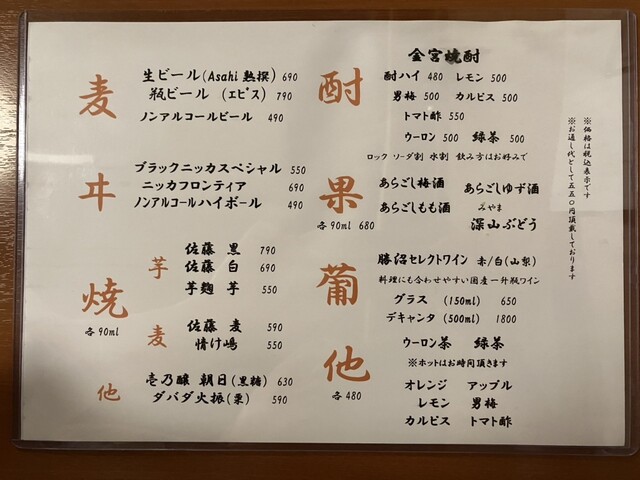 麦
生ビール(Asahi 熟撰) 690
瓶ビール (ヱビス) 790
ノンアルコールビール 490
ヰ
ブラックニッカスペシャル 550
ニッカフロンティア 690
ノンアルコールハイボール 490
焼
各90ml
芋
佐藤 黒 790
佐藤 白 690
芋麹 芋 550
麦
佐藤 麦 590
情け嶋 550
他
壱乃醸 朝日(黒糖) 630
ダバダ火振(栗) 590
酎
金宮焼酎
酎ハイ 480 レモン 500
男梅 500 カルピス 500
トマト酢 550
ウーロン 500 緑茶 500
ロック ソーダ割 水割 飲み方はお好みで
果
各90ml 680
あらごし梅酒 あらごしゆず酒
あらごしもも酒 みやま
深山ぶどう
葡
勝沼セレクトワイン 赤/白(山梨)
料理にも合わせやすい国産一升瓶ワイン
グラス (150ml) 650
デキャンタ (500ml) 1800
他
各480
ウーロン茶 緑茶
※ホットはお時間頂きます
オレンジ アップル
レモン 男梅
カルピス トマト酢
※価格は税込表示です
※お通し代として五五〇円頂戴しております